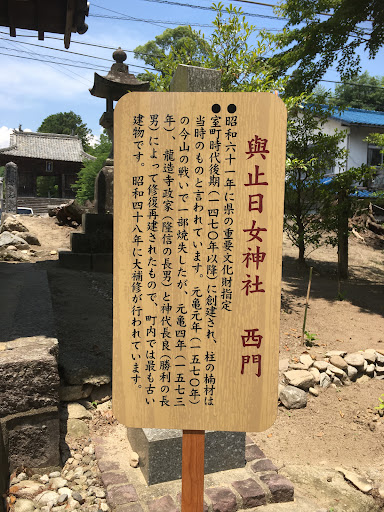 與止日女神社　西門
●昭和六十一年に県の重要文化財指定
●室町時代後期(一四七〇年以降)に創建され、柱の楠材は
当時のものと言われています。元亀元年(一五七〇年)
の今山の戦いで一部焼失したが、元亀四年(一五七三
年)、龍造寺政家(隆信の長男)と神代長良(勝利の長
男)によって修復再建されたもので、町内では最も古い
建物です。昭和四十八年に大補修が行われています。